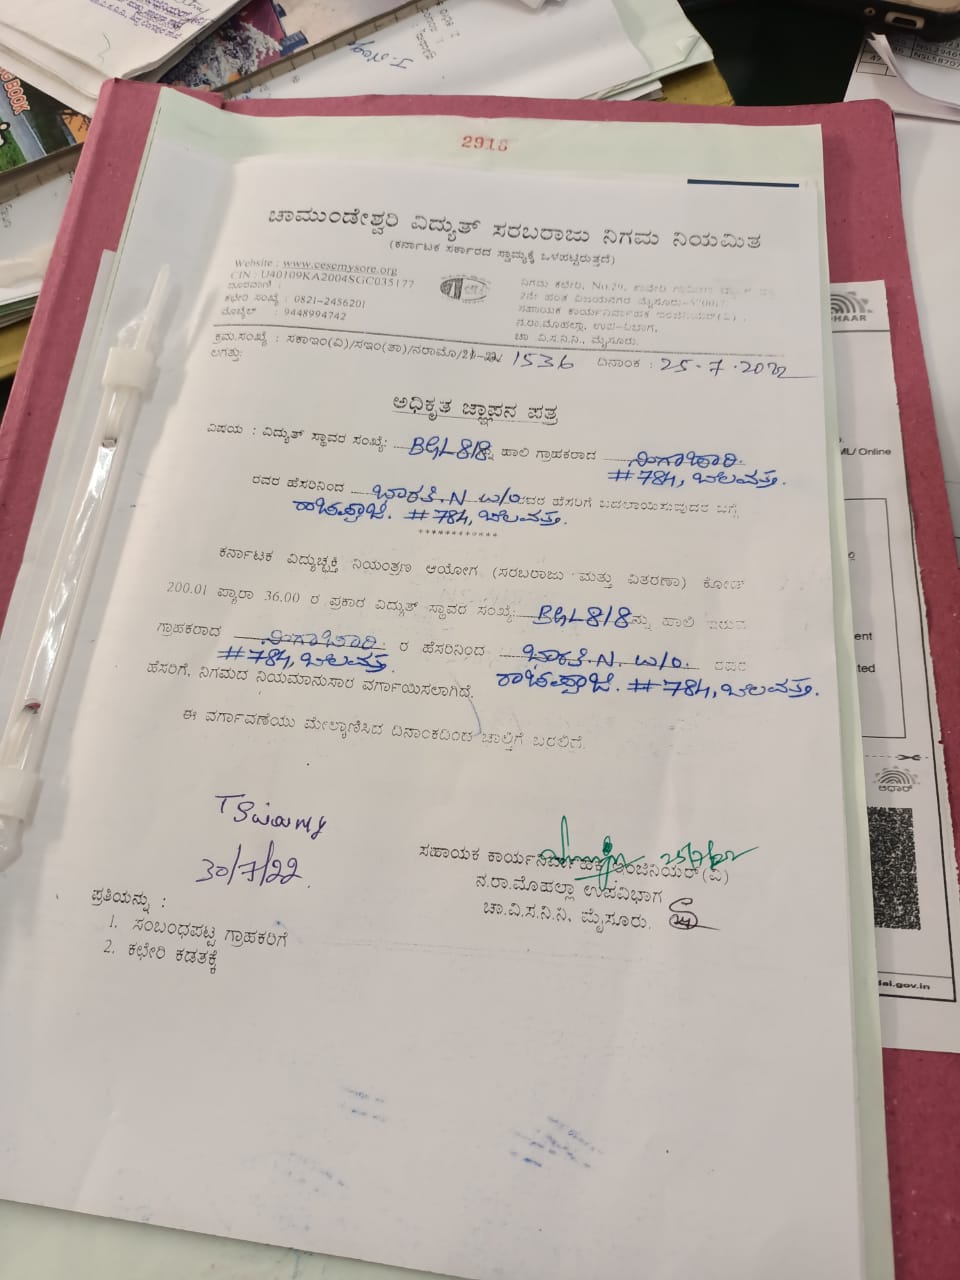 2916
ಚಾಮುಂಡೇಶ್ವರಿ ವಿದ್ಯುತ್ ಸರಬರಾಜು ನಿಗಮ ನಿಯಮಿತ
(ಕರ್ನಾಟಕ ಸರ್ಕಾರದ ಸ್ವಾಮ್ಯಕ್ಕೆ ಒಳಪಟ್ಟಿರುತ್ತದೆ)
Website : www.cescmysore.org
CIN : U40109KA2004SGC035177
ದೂರವಾಣಿ :
ಕಛೇರಿ ಸಂಖ್ಯೆ : 0821-2456201
ಮೊಬೈಲ್ : 9448994742
ನಿಗಮ ಕಛೇರಿ, No.29, ಕಾವೇರಿ ಗ್ರಾಮೀಣ
2ನೇ ಹಂತ ವಿಜಯನಗರ ಮೈಸೂರು-
ಸಹಾಯಕ ಕಾರ್ಯನಿರ್ವಾಹಕ ಇಂಜಿನಿಯರ್(ವಿ) ,
ನ.ರಾ.ಮೊಹಲ್ಲಾ, ಉಪ-ವಿಭಾಗ,
ಚಾ.ವಿ.ಸ.ನಿ.ನಿ., ಮೈಸೂರು.
ಕ್ರಮ.ಸಂಖ್ಯೆ : ಸಕಾಇಂ(ವಿ)/ಸಇಂ(ತಾ)/ನರಾಮೊ/ 1536 ದಿನಾಂಕ : 25-7-2022
ಲಗತ್ತು:
ಅಧಿಕೃತ ಜ್ಞಾಪನ ಪತ್ರ
ವಿಷಯ : ವಿದ್ಯುತ್ ಸ್ಥಾವರ ಸಂಖ್ಯೆ: BGL818 ನ್ನು ಹಾಲಿ ಗ್ರಾಹಕರಾದ ನಿಂಗಾಚಾರಿ.
#784, ಬೆಲವತ್ತ.
ರವರ ಹೆಸರಿನಿಂದ ಭಾರತಿ.N w/o ರವರ ಹೆಸರಿಗೆ ಬದಲಾಯಿಸುವುದರ ಬಗ್ಗೆ
#784, ಬೆಲವತ್ತ.
************
ಕರ್ನಾಟಕ ವಿದ್ಯುಚ್ಛಕ್ತಿ ನಿಯಂತ್ರಣ ಆಯೋಗ (ಸರಬರಾಜು ಮತ್ತು ವಿತರಣಾ) ಕೋಡ್
200.01 ಪ್ಯಾರಾ 36.00 ರ ಪ್ರಕಾರ ವಿದ್ಯುತ್ ಸ್ಥಾವರ ಸಂಖ್ಯೆ: BGL818 ನ್ನು ಹಾಲಿ ಇರುವ
ಗ್ರಾಹಕರಾದ ನಿಂಗಾಚಾರಿ ರ ಹೆಸರಿನಿಂದ ಭಾರತಿ.N w/o. ರವರ
#784, ಬೆಲವತ್ತ. #784, ಬೆಲವತ್ತ.
ಹೆಸರಿಗೆ, ನಿಗಮದ ನಿಯಮಾನುಸಾರ ವರ್ಗಾಯಿಸಲಾಗಿದೆ.
ಈ ವರ್ಗಾವಣೆಯು ಮೇಲ್ಕಾಣಿಸಿದ ದಿನಾಂಕದಿಂದ ಚಾಲ್ತಿಗೆ ಬರಲಿದೆ.
30/7/22.
25/7/22
ಸಹಾಯಕ ಕಾರ್ಯನಿರ್ವಾಹಕ ಇಂಜಿನಿಯರ್(ವಿ)
ನ.ರಾ.ಮೊಹಲ್ಲಾ ಉಪವಿಭಾಗ
ಚಾ.ವಿ.ಸ.ನಿ.ನಿ, ಮೈಸೂರು.
ಪ್ರತಿಯನ್ನು :
1. ಸಂಬಂಧಪಟ್ಟ ಗ್ರಾಹಕರಿಗೆ
2. ಕಛೇರಿ ಕಡತಕ್ಕೆ
ML/ Online
ಆಧಾರ್
BOOK